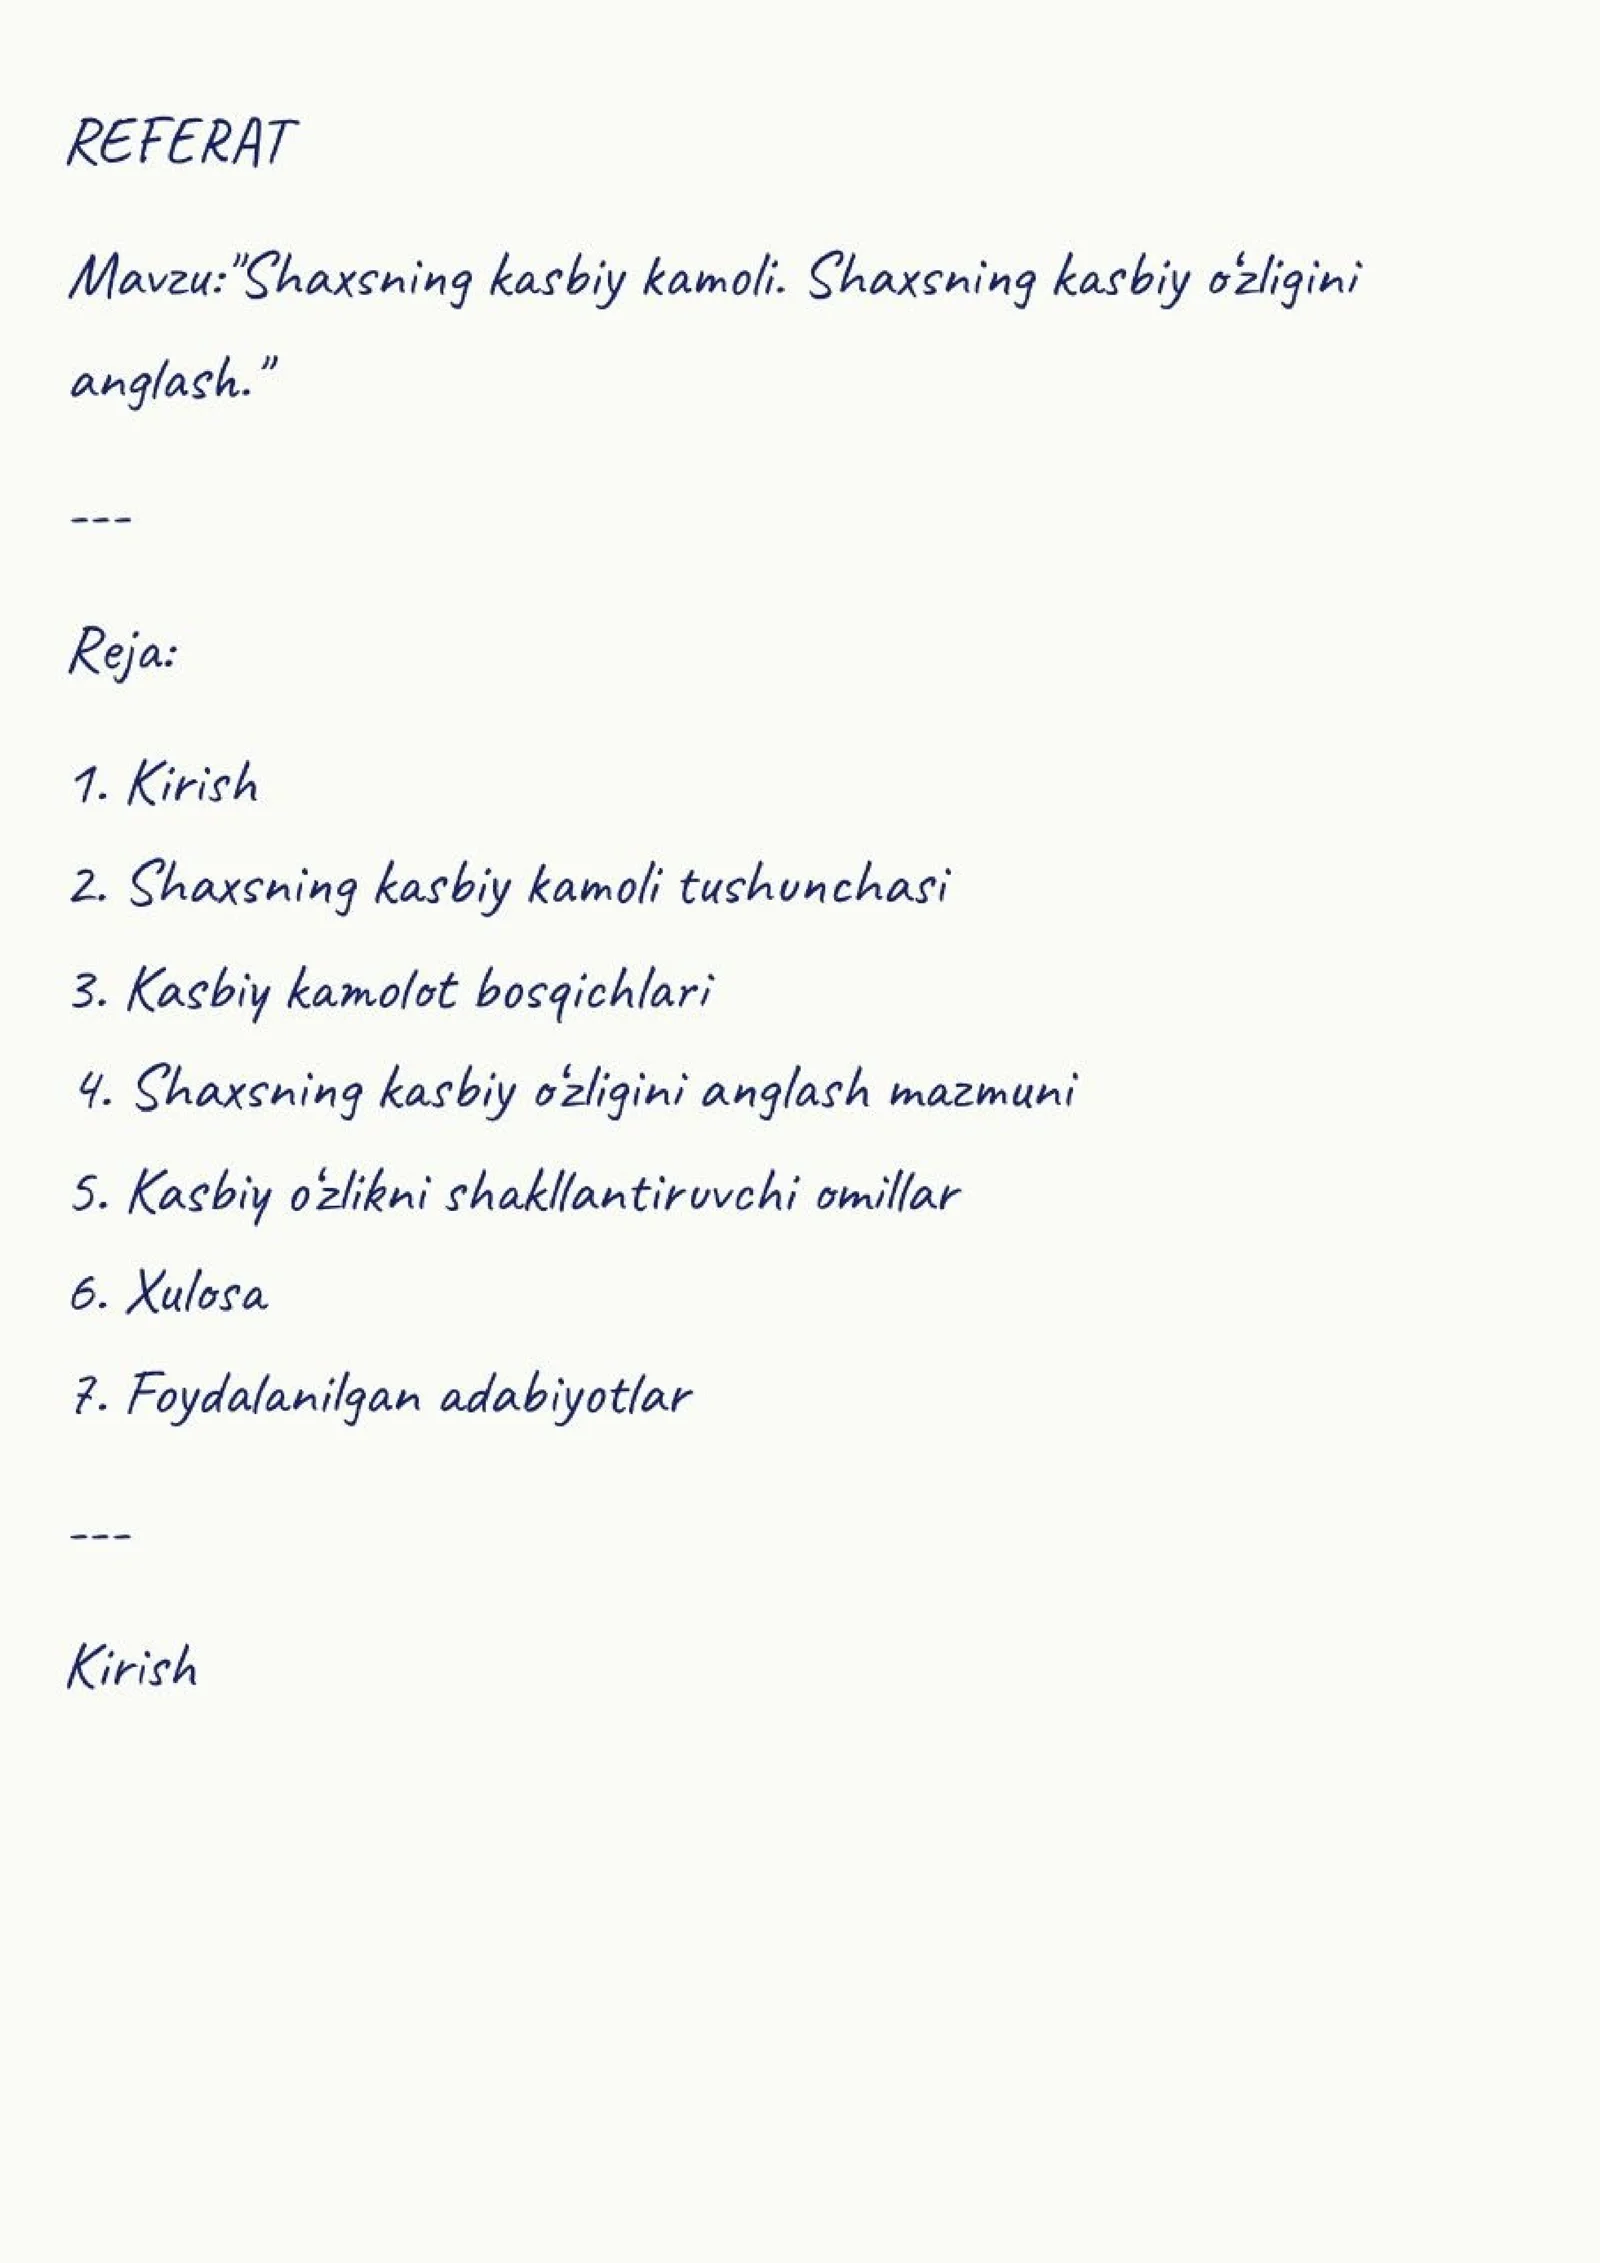 REFERAT
Mavzu:"Shaxsning kasbiy kamoli. Shaxsning kasbiy o‘zligini
anglash."
---
Reja:
1. Kirish
2. Shaxsning kasbiy kamoli tushunchasi
3. Kasbiy kamolot bosqichlari
4. Shaxsning kasbiy o‘zligini anglash mazmuni
5. Kasbiy o‘zlikni shakllantiruvchi omillar
6. Xulosa
7. Foydalanilgan adabiyotlar
---
Kirish